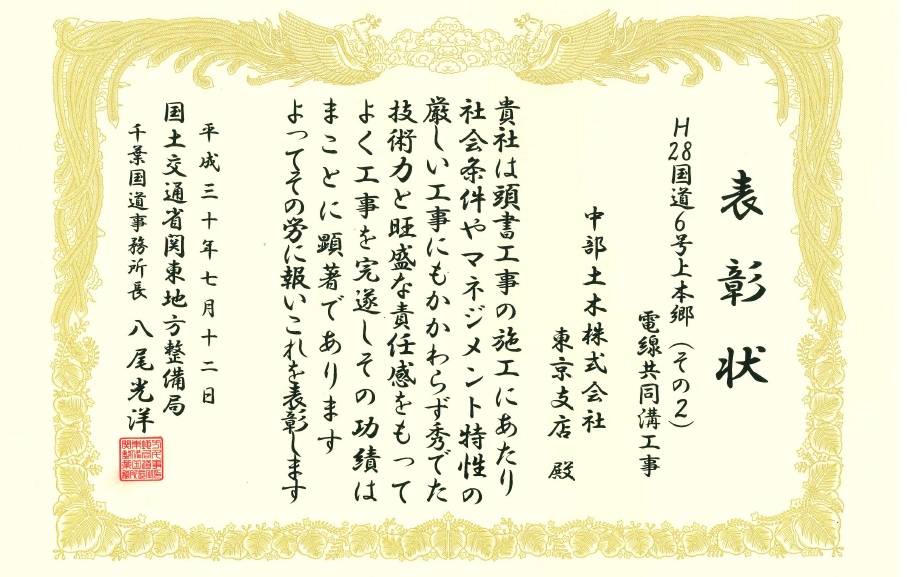 表彰状
H28国道6号上本郷(その2)
電線共同溝工事
中部土木株式会社
東京支店 殿
貴社は頭書工事の施工にあたり
社会条件やマネジメント特性の
厳しい工事にもかかわらず秀でた
技術力と旺盛な責任感をもって
よく工事を完遂しその功績は
まことに顕著であります
よってその労に報いこれを表彰します
平成三十年七月十二日
国土交通省関東地方整備局
千葉国道事務所長 八尾光洋